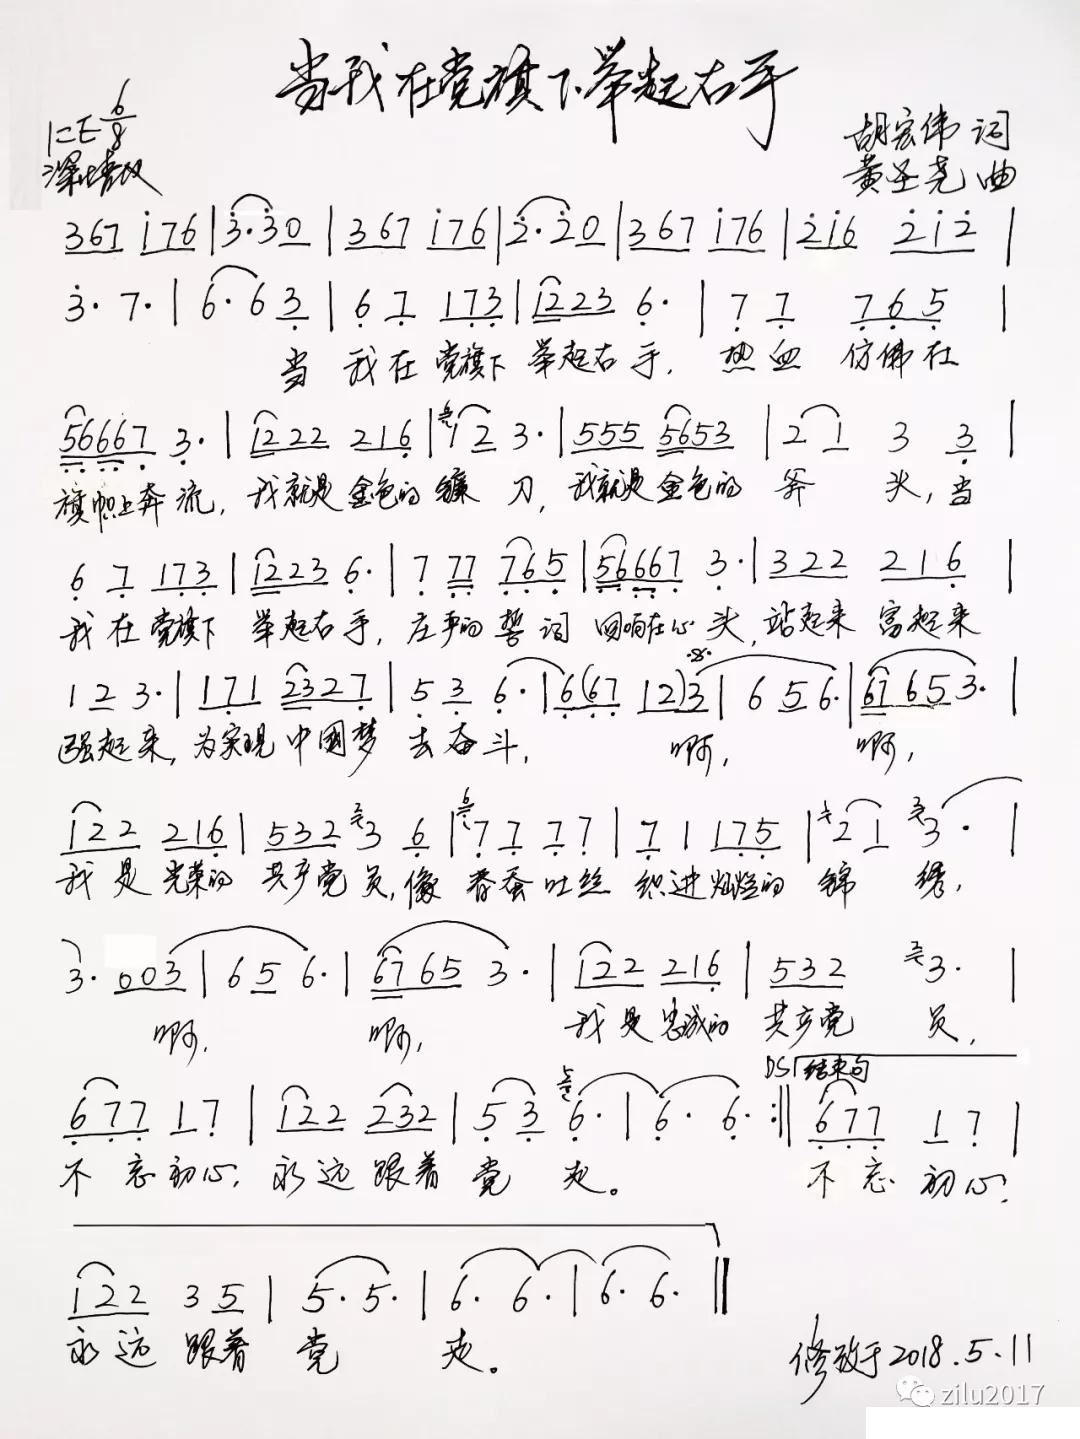 当我在党旗下举起右手
1=E 6/8
深情地
胡宏伟 词
黄圣尧 曲
367 i76 | 3·30 | 367 i76 | 2·20 | 367 i76 | 2i6 2i2 |
3· 7· | 6·63 | 6 7 173 | 1223 6· | 7 7 765 |
当 我在党旗下 举起右手, 热血 仿佛在
56667 3· | 1222 216 | 12 3· | 555 5653 | 21 3 3 |
旗帜上奔流, 我就是金色的镰刀, 我就是金色的斧头, 当
6 7 173 | 1223 6· | 7 77 765 | 56667 3· | 322 216 |
我在党旗下 举起右手, 庄严的誓词 回响在心头, 站起来 富起来
12 3· | 171 2327 | 53 6· | 6(67 12)3 | 6 5 6· | 6765 3· |
强起来, 为实现中国梦 去奋斗, 啊, 啊,
122 216 | 532 3 6 | 7 7 7 7 | 7 1 175 | 21 3· |
我是光荣的 共产党员, 像春蚕吐丝 织进灿烂的锦绣,
3· 003 | 6 5 6· | 6765 3· | 122 216 | 532 3· |
啊, 啊, 我是忠诚的 共产党员,
DS 结束句
677 17 | 122 232 | 53 6· | 6· 6· :|| 677 17 |
不忘初心, 永远跟着党走。 不忘初心,
122 35 | 5· 5· | 6· 6· | 6· 6· ||
永远跟着党走。
修改于2018.5.11
zilu2017